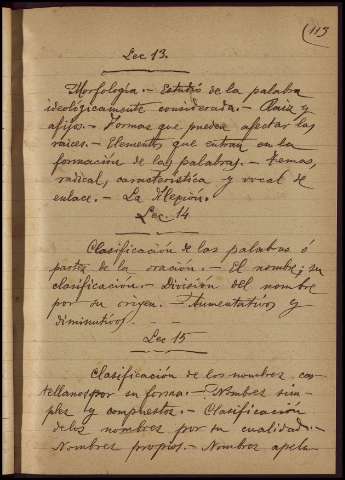 (113
Lec 13.
Morfología.- Estudio de la palabra
ideológicamente considerada.- Raiz y
afijos.- Formas que pueden afectar las
raices.- Elementos que entran en la
formación de las palabras.- Temas,
radical, caracteristica y vocal de
enlace.- La flexión.
Lec 14
Clasificación de las palabras ó
partes de la oración.- El nombre; su
clasificación.- División del nombre
por su origen.- Aumentativos y
diminutivos.
Lec 15
Clasificación de los nombres cas-
tellanos por su forma.- Nombres sim-
ples y compuestos.- Clasificación
de los nombres por su cualidad.-
Nombres propios.- Nombres apela-